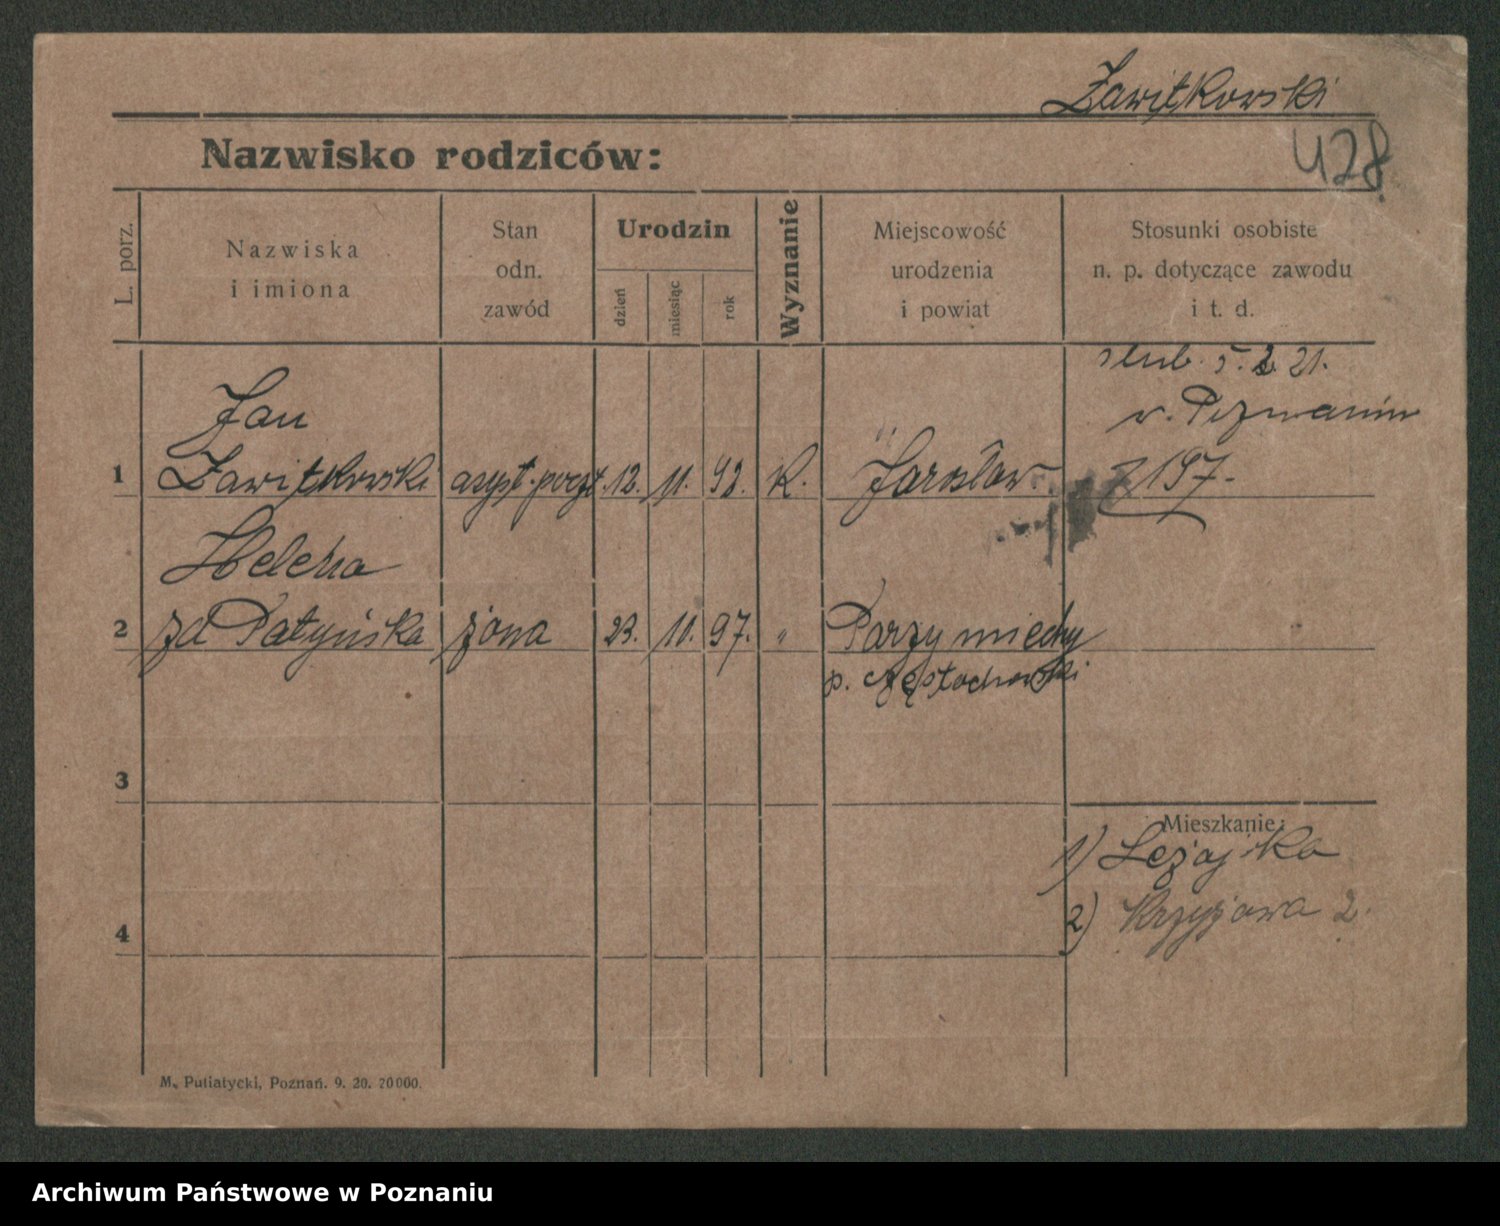 Zawitkowski
428
Nazwisko rodziców:
L. porz.
Nazwiska
i imiona
Stan
odn.
zawód
Urodzin
dzień
miesiąc
rok
Wyznanie
Miejscowość
urodzenia
i powiat
Stosunki osobiste
n. p. dotyczące zawodu
i t. d.
ślub. 5. 2. 21.
w. Poznaniu
197.
Jan
1 Zawitkowski asyst. poczt. 12. 11. 92. K. Jarosław
Helena
2 zd Patyńska żona 23. 10. 97. " Parzymiechy
p. częstochowski
3
Mieszkanie:
1) Leżajska
2) Krzyżowa 2.
4
M. Putiatycki, Poznań. 9. 20. 20000.
Archiwum Państwowe w Poznaniu